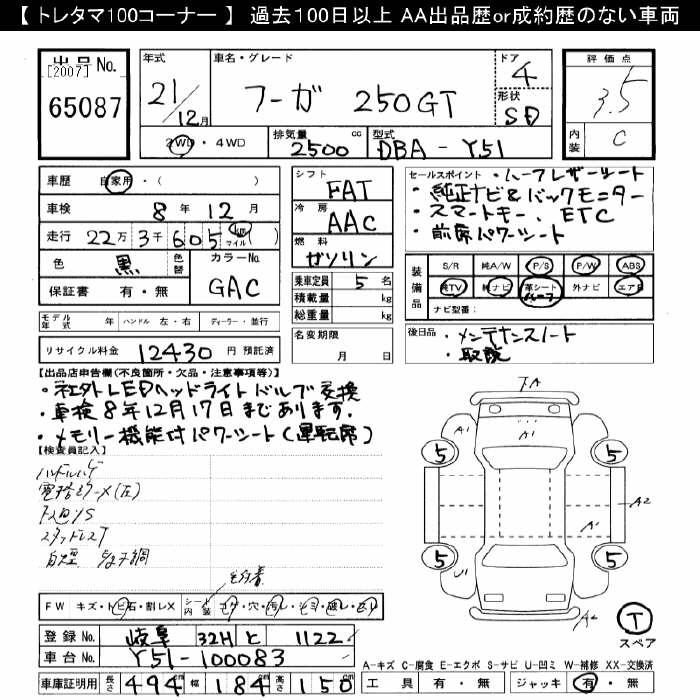 【 トレタマ100コーナー 】 過去100日以上 AA出品歴or成約歴のない車両
出品No. [2007] 65087
年式 21/12月
車名・グレード フーガ 250GT
ドア 4
形状 SD
評価点 3.5
内装 C
2WD・4WD
排気量 2500 cc
型式 DBA-Y51
車歴 自家用・( )
車検 8年12月
走行 22万3千605 km マイル ( )
色 黒 色替 カラーNo. GAC
保証書 有・無
シフト FAT
冷房 AAC
燃料 ガソリン
乗車定員 5名
積載量 kg
総重量 kg
名変期限 月 日
セールスポイント ・ハーフレザーシート
・純正ナビ&バックモニター
・スマートキー、ETC
・前席パワーシート
装備品 S/R 純A/W P/S P/W ABS
純TV 純ナビ 革シート ハーフ 外ナビ エアB
ナビ型番:
モデル年式 年 ハンドル 左・右 ディーラー・並行
リサイクル料金 12430 円 預託済
後日品 ・メンテナンスノート
・取説
【出品店申告欄(不良箇所・欠品・注意事項等)】
・社外LEDヘッドライトバルブ交換
・車検8年12月17日まであります.
・メモリー機能付パワーシート(運転席)
【検査員記入】
ハンドルハゲ
FA
A1
A1
5 5
A2
A1
5 5
U1
A2
T
スペア
FW キズ・トビ石・割レX
シート内装 コゲ・穴・汚レ・シミ・破レ・スレ
登録No. 岐阜 32H と 1122
車台No. Y51-100083
車庫証明用 長さ 494cm 幅 184cm 高さ 150cm
A-キズ C-腐食 E-エクボ S-サビ U-凹ミ W-補修 XX-交換済
工具 有・無 ジャッキ 有・無